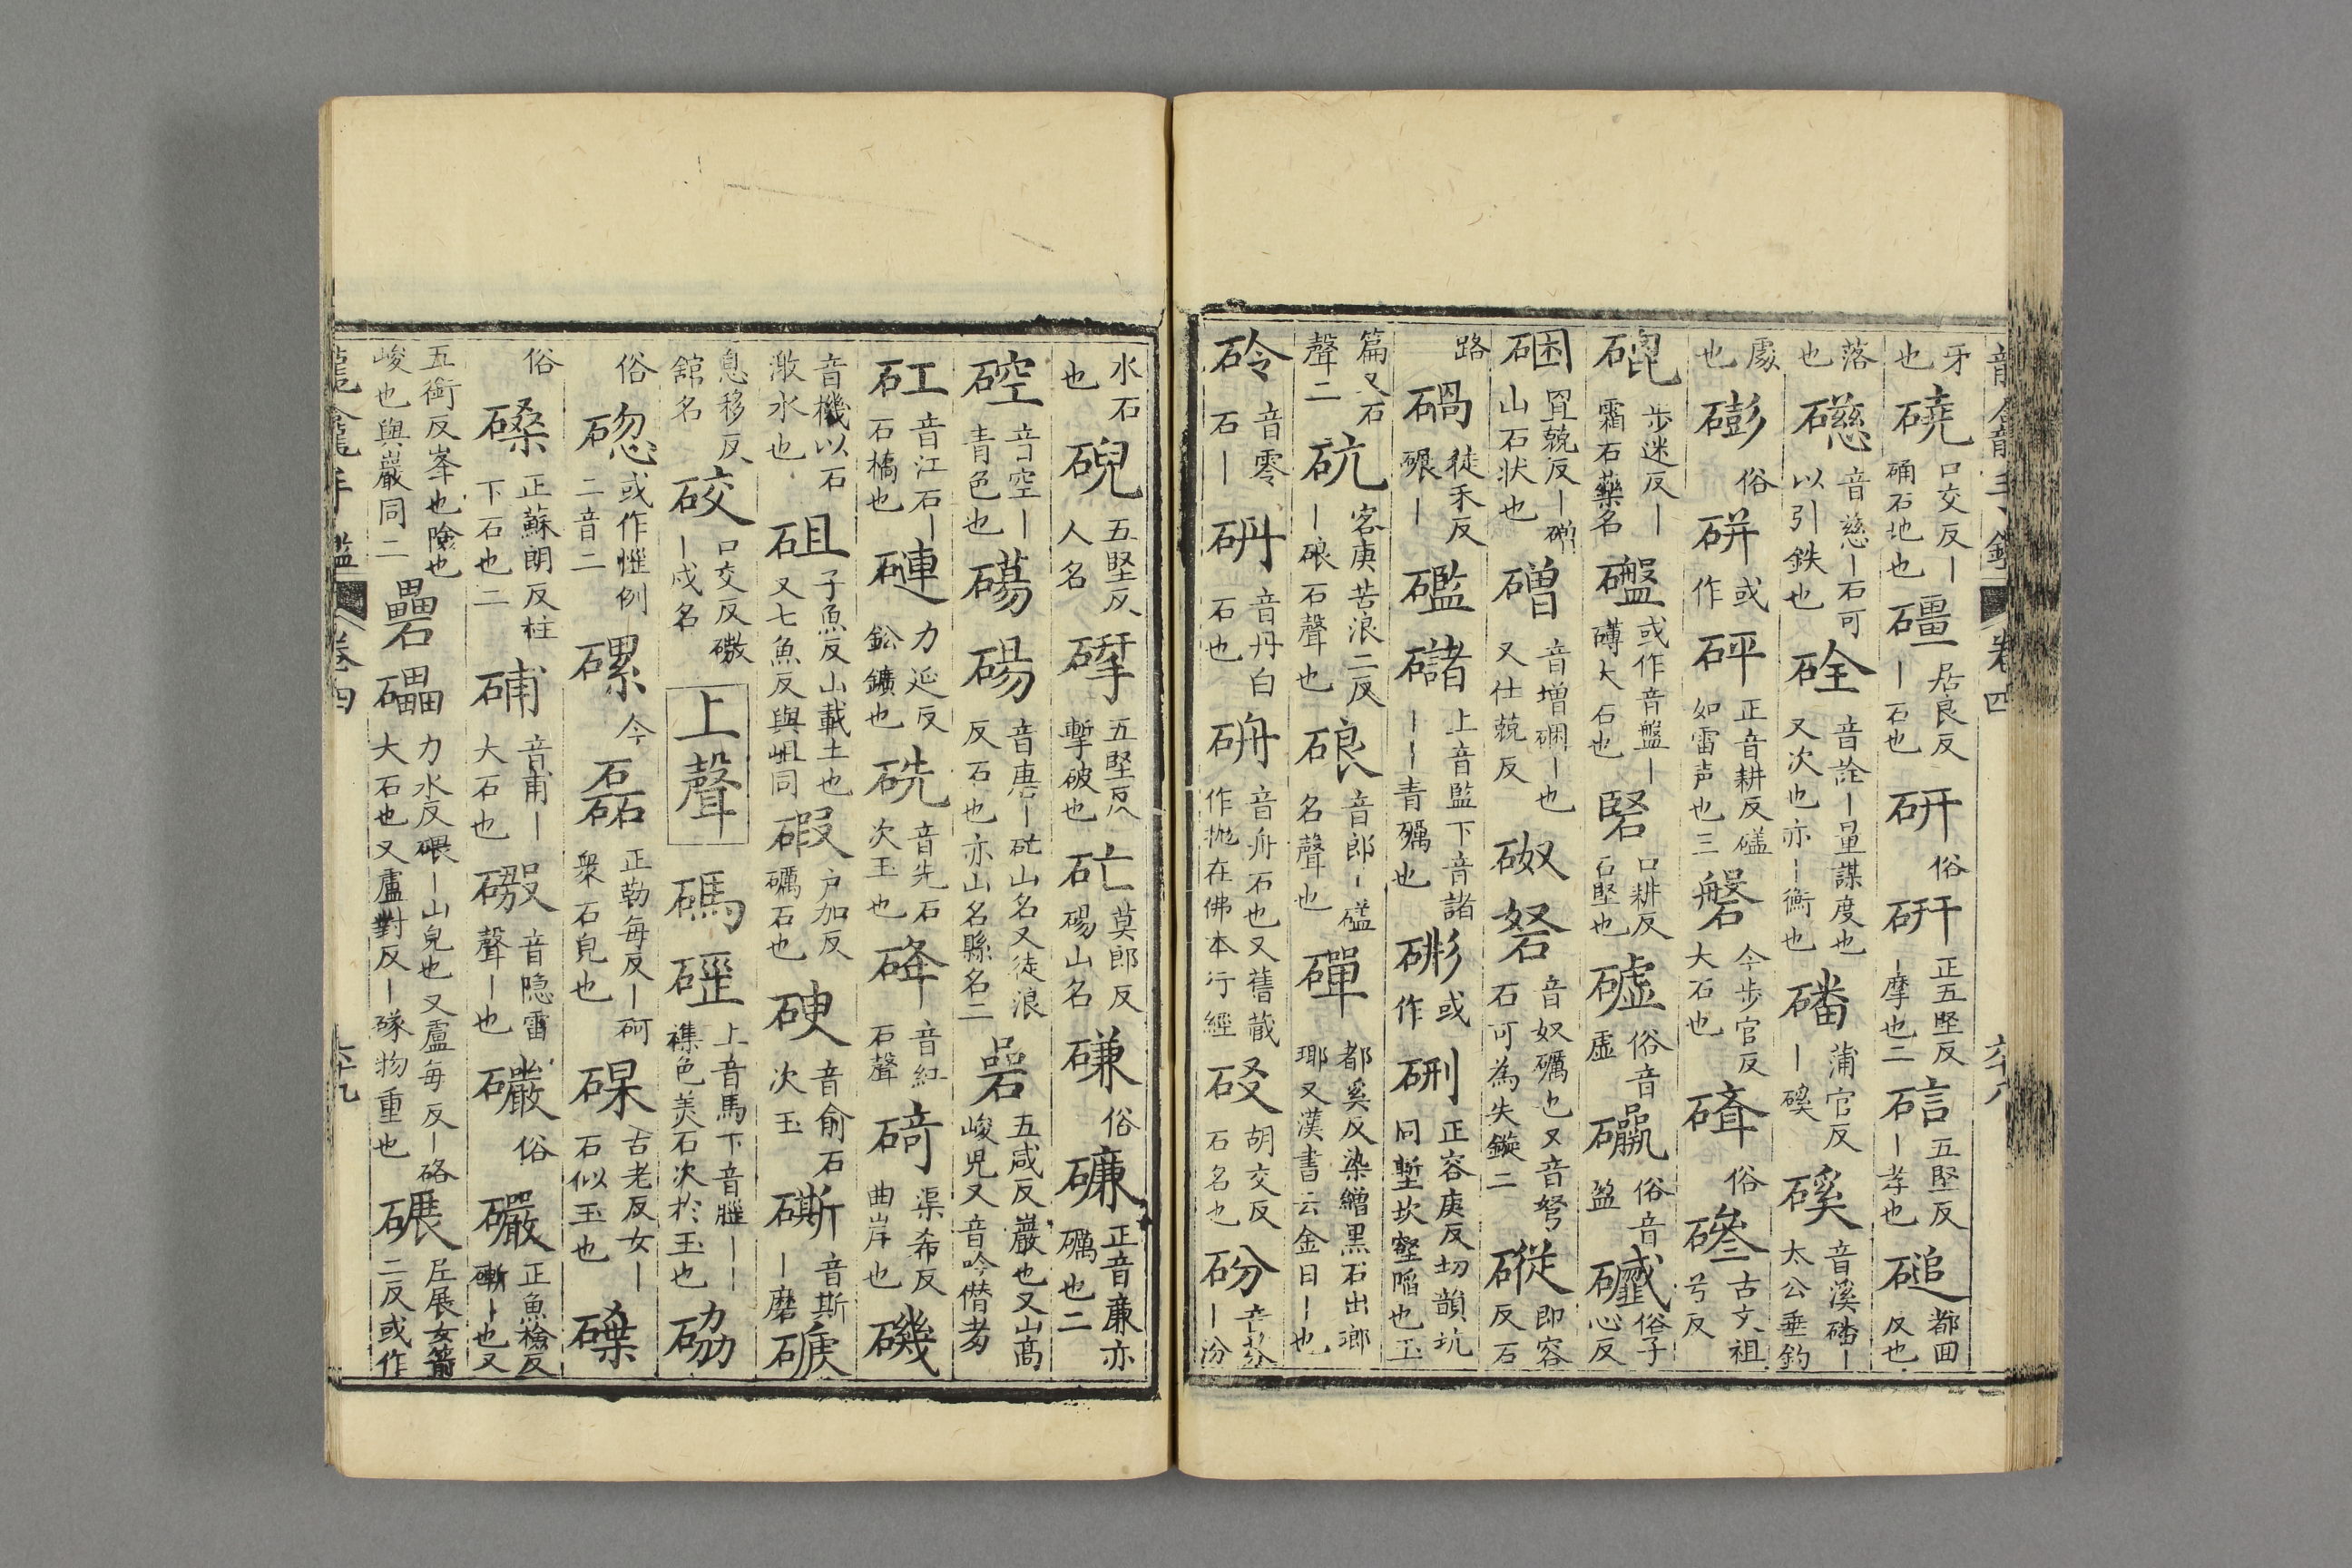 龍龕手鑑 卷四 六十八
牙也 磽 口交反丨确石地也 礓 居良反丨石也 研 俗 硏 正五堅反丨摩也二 𥑻 五堅反丨孝也 磓 都回反也
落也 礠 音慈丨石可以引鉄也 硂 音詮丨量謀度也又次也亦丨衡也 磻 蒲官反丨磎 磎 音溪磻丨太公垂釣
處也 磞 俗 硑 或作 砰 正音耕反礚如雷声也三 磐 今步官反大石也 䃘 俗 磣 古文祖兮反
磇 步迷反丨霜石藥名 𥔽 或作音盤丨礴大石也 硻 口耕反石堅也 𥕓 俗音虛 俗音盈 俗子心反
硱 罝兢反丨磳山石状也 磳 音增硱丨也又仕兢反 砮 音奴礪也又音弩石可為矢鏃二 磫 即容反石
路 碢 徒禾反碾丨 礛䃴 上音監下音諸丨丨青礪也 硎 或作 硎 正容庚反切韻坑同塹坎壑陥也玉
篇又石聲二 砊 客庚苦浪二反丨硠石聲也 硠 音郎丨礚名聲也 磾 都奚反染繒黒石出瑯耶又漢書云金日丨也
砱 音零石丨 𥐻 音丹白石也 𥑇 音舟石也又舊蔵作抛在佛本行經 𥐟 胡交反石名也 砏 音芬丨汾
水石也 硯 五堅反人名 硏 五堅反掔破也 硭 莫郎反碭山名 磏 俗 䃸 正音廉亦礪也二
硿 音空丨青色也 碭 碭 音唐丨硭山名又徒浪反石也亦山名縣名二 碞 五咸反巖也又山高峻皃又音吟僭差
矼 音江石丨石橋也 䃛 力延反鈆鑛也 硄 音先石次玉也 𥑻 音紅石聲 碕 渠希反曲岸也 磯
音機以石激水也 砠 子魚反山載土也又七魚反與岨同 碬 戸加反礪石也 𥓓 音俞石次玉 𥕶 音斯丨磨 磃
息移反舘名 䂭 口交反磝丨戍名 上聲 碼 𥓐 上音馬下音𤨏丨丨襍色美石次於玉也 𥑒
俗 𥔧 或作𤨏例二音二 磥 今 磊 正勒每反丨砢衆石皃也 𥓖 古老反女丨石似玉也 磼
俗 磉 正蘇朗反柱下石也二 𥓊 音甫丨大石也 磤 音隱雷聲丨也 礹 俗 礹 正魚檢反嶄丨也又
五銜反峯也險也峻也與巖同二 礨 礧 力水反碨丨山皃也又盧每反丨硌大石也又盧對反丨磙物重也 碾 尼展女箭二反或作
龍龕手鑑 卷四 六十九